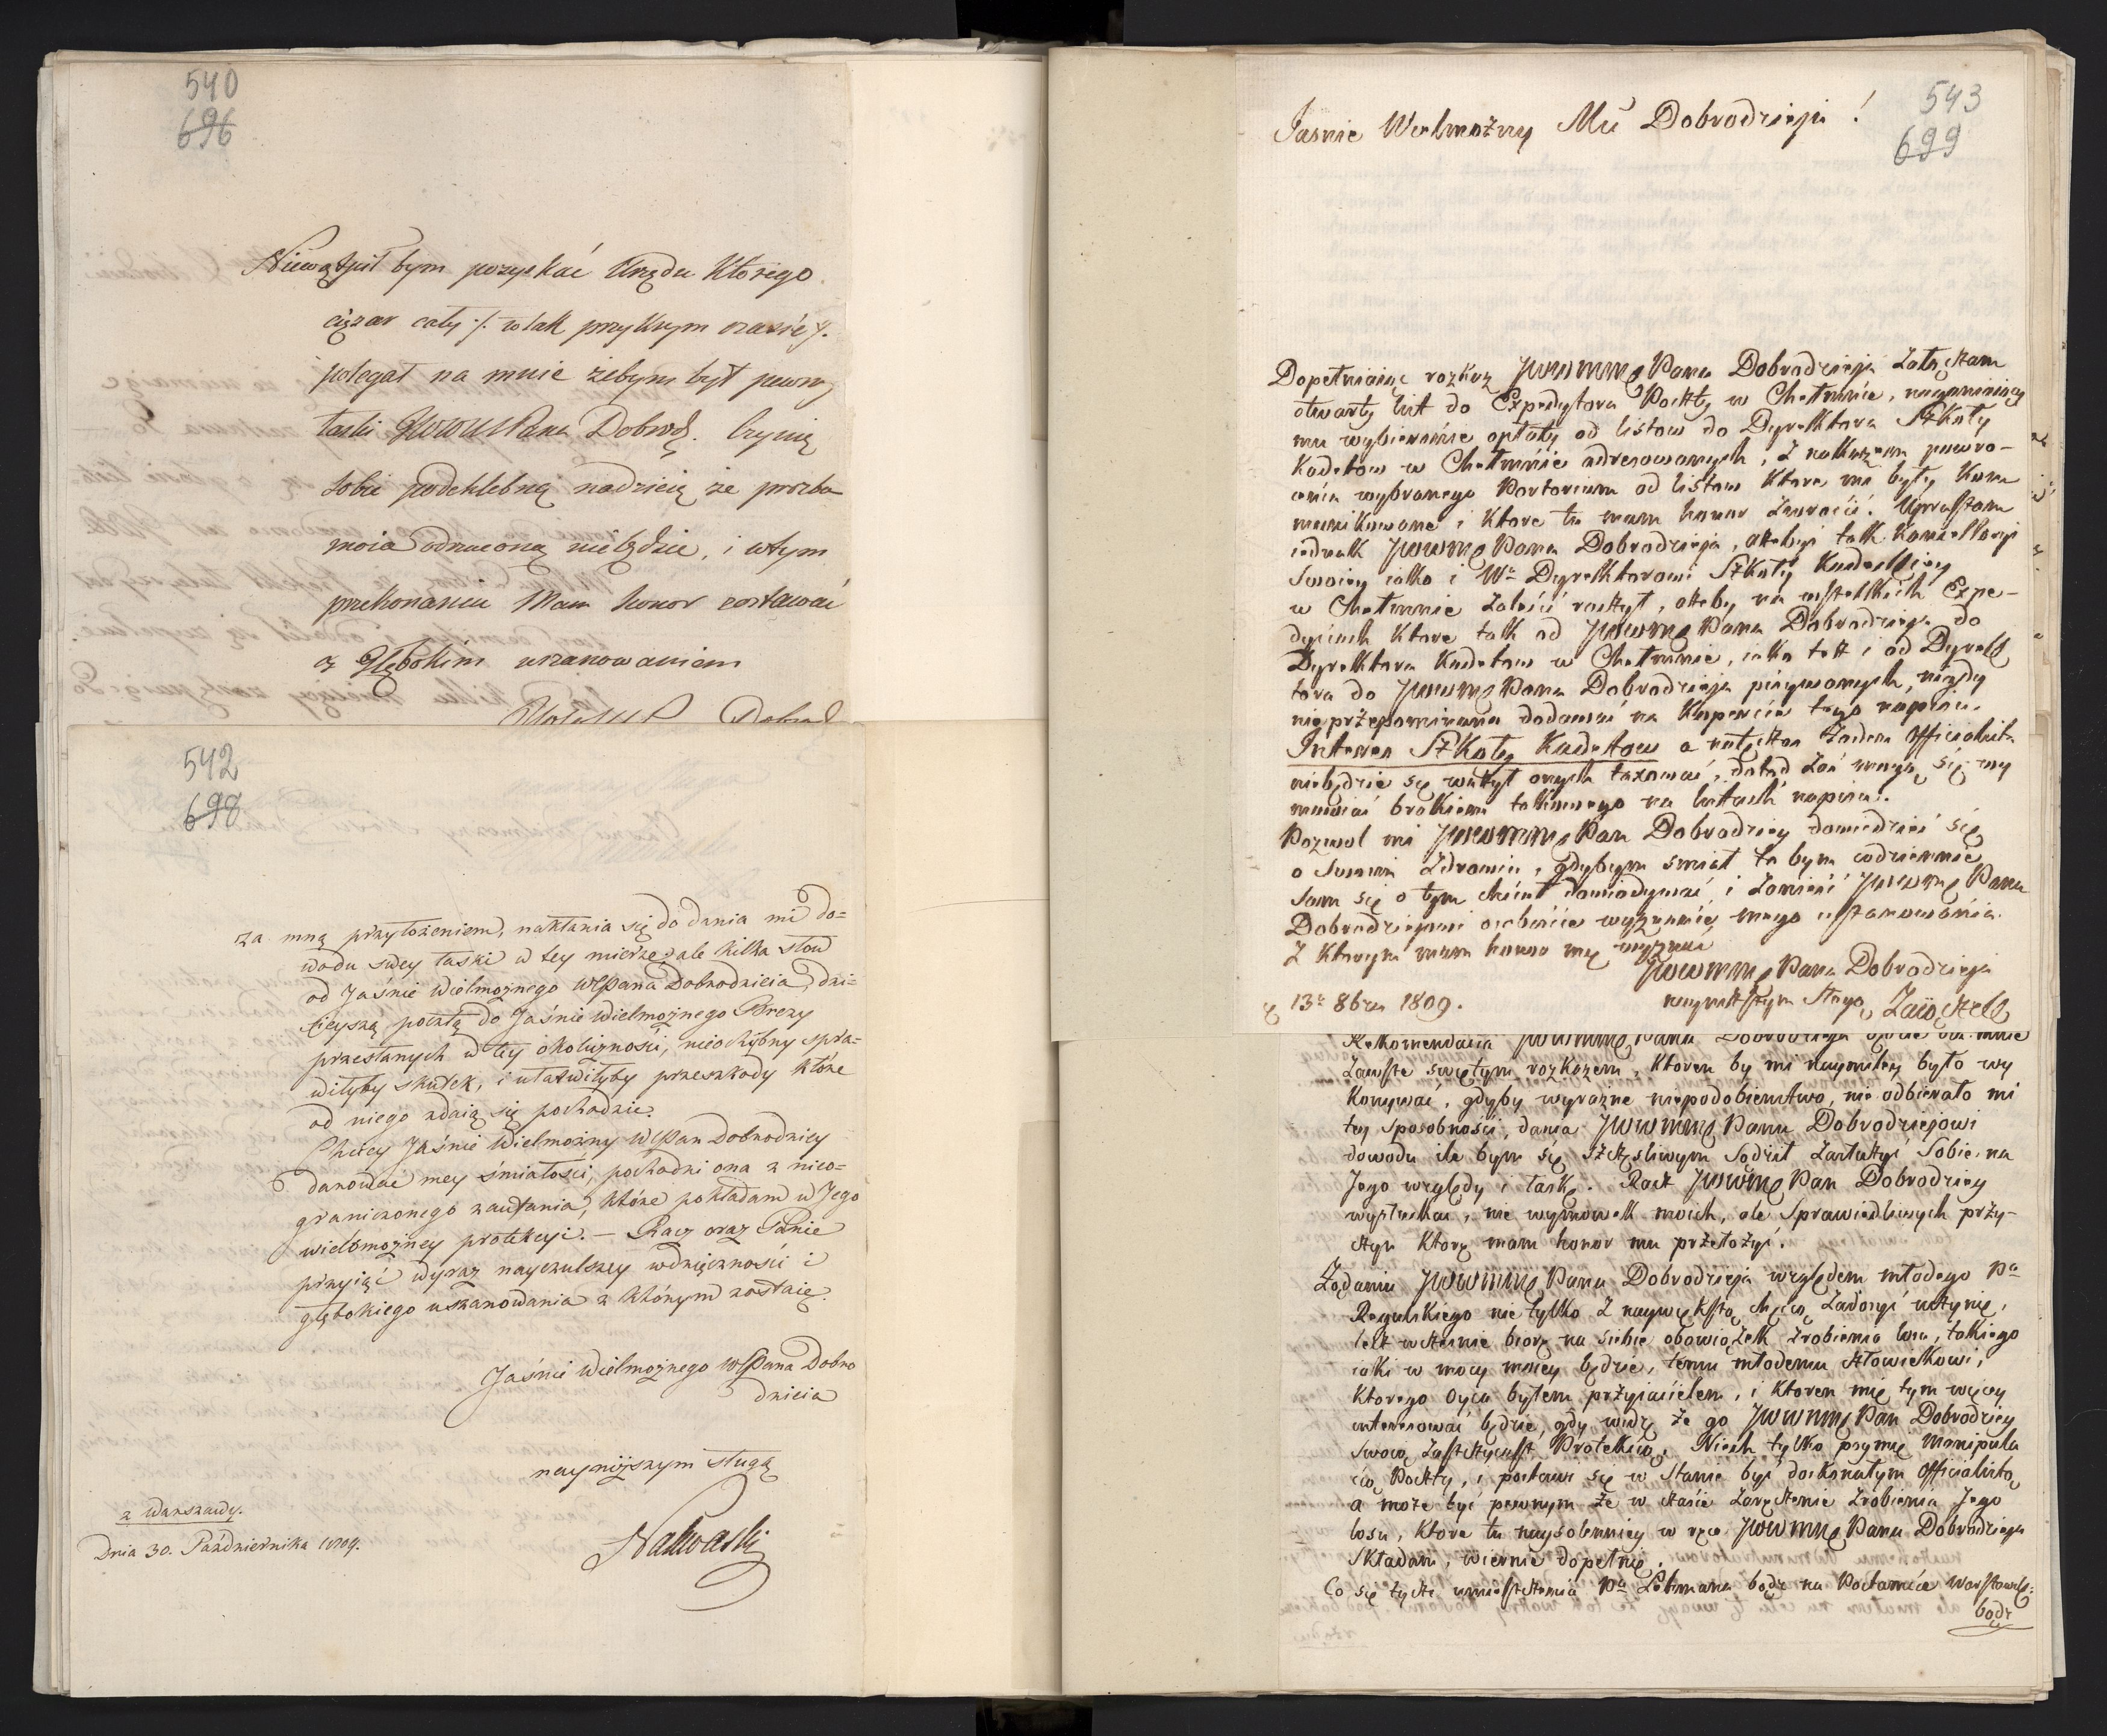 540
696
Niewątpił bym pozyskać Urzędu Którego
ciężar cały ./. w tak przykrym czasie ./.
polegał na mnie żebym był pewny
łaski JWWMPana Dobrodz. Czynię
sobie podchlebną nadzieię że prozba
moia odrzuconą niebędzie, i wtym
przekonaniu Mam honor zostawać
z Głębokim uszanowaniem
542
698
za mną przyłożeniem, nakłania się do dania mi do=
wodu swey łaski w tey mierze; ale kilka słow
od Jaśnie Wielmożnego WPana Dobrodzieia, dzi=
sieyszą pocztą do Jaśnie Wielmożnego Brezy
przesłanych w tey okoliczności, nieochybny spra=
wiłyby skutek, i ułatwiłyby przeszkody które
od niego zdaią się pochodzić.
Chciey Jaśnie Wielmożny WPan Dobrodziey
darować mey śmiałości; pochodzi ona z nieo=
graniczonego zaufania, które pokładam w Jego
wielomożney protekcyi. — Racz oraz Panie
przyiąć wyraz nayczulszey wdzięczności i
głębokiego uszanowania z którym zostaię.
Jaśnie Wielmożnego WPana Dobro
dzieia
nayniższym sługą
Nakwaski
z Warszawy.
Dnia 30. Października 1809.
543
699
Jasnie Wielmożny Mci Dobrodzieju !
Dopełniaiąc rozkaz JWWMMPana Dobrodzieja załączam
otwarty list do Expedytora Poczty w Chełmnie, naganiaiący
mu wybieranie opłaty od listow do Dyrektora Szkoły
Kadetow w Chełmnie adresowanych, z nakazem powro-
cenia wybranego Portorium od listow ktore mi były kom
munikowane i ktore tu mam honor zwrocić. Upraszam
iednak JWWMPana Dobrodzieja, ażebyś tak Kancellaryi
Swoiey iako i Wu Dyrektorowi Szkoły Kadeckiey
w Chełmnie zalecić raczył, ażeby na wszelkich Expe-
dyciach ktore tak od JWWMPana Dobrodzieja do
Dyrektora Kadetow w Chełmnie, iako też i od Dyrek
tora do JWWMPana Dobrodzieja pisywanych, nigdy
nieprzepominano dodawać na Kopercie tego napisu.
Interes Szkoły Kadetow a natęczas żaden Officialista
niebędzie się ważył onych taxować, dotąd zaś mogą się wy
mawiać brakiem takowego na listach napisu.
Pozwol mi JWWMMPan Dobrodziey dowiedzieć się
o Swoim Zdrowiu, gdybym smiał to bym codziennie
sam się o tym chciał dowiadywać, i zanieść JWWMPanu
Dobrodziejowi osobiście wyznanie mego uszanowania.
Z Ktorym mam honor się wyznać
JWWMMPana Dobrodzieja
nayniższym Sługą Zaiączek
d 13. 8bra 1809.
Rekomendacia JWWMMPana Dobrodzieja będzie dla mnie
zawsze swiętym rozkazem, ktoren by mi naymiley było wy
konywać, gdyby wyrazne niepodobieństwo, nie odbierało mi
tey sposobności, dania JWWMMPanu Dobrodziejowi
dowodu ile bym się szczęsliwym sądził zasłużyć sobie na
Jego względy i łaskę. Racz JWWMMPan Dobrodziey
wysłuchać, nie wymowek moich, ale sprawiedliwych przy-
czyn ktore mam honor mu przełożyć.
Żądaniu JWWMMPana Dobrodzieja względem młodego Pa
Regulskiego nie tylko z naywiększą chęcią zadosyć uczynię,
lecz wcześnie biorę na siebie obowiązek zrobienia losu, takiego
iaki w mocy moiey będzie, temu młodemu człowiekowi,
ktorego oyca byłem przyiacielem, i ktoren mię tym więcey
interesować będzie, gdy widzę że go JWWMMPan Dobrodziey
swoią zaszczycasz Protekcią. Niech tylko poymie Manipula
cią Poczty, i postawi się w stanie być doskonałym Officialistą
a może być pewnym że w czasie zaręczenie zrobienia Jego
losu, ktore tu naysolenniey w ręce JWWMMPana Dobrodzieja
składam, wiernie dopełnię.
Co się tycze umieszczenia Pa Lehmana bądz na Pocztamcie Warszawsk:
bądz